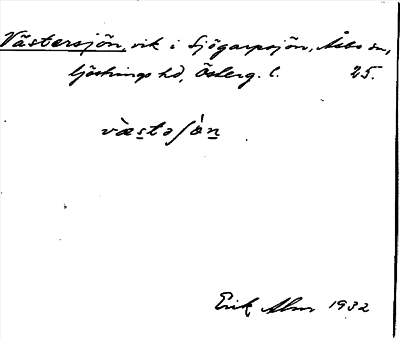 Västersjön, vik i Sjögarpsjön, Åsbo sn,
Göstrings hd, Österg. l. 25.
västəʃön
Erik Alm 1932